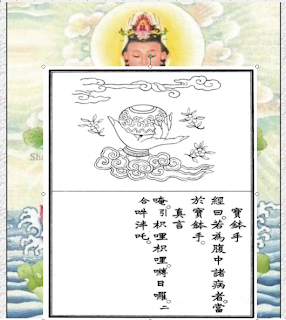 寶鉢手
經曰。若為腹中諸病者。當
於寶鉢手。
真言
唵。引枳哩枳哩。嚩日囉。二
合吽泮吒。